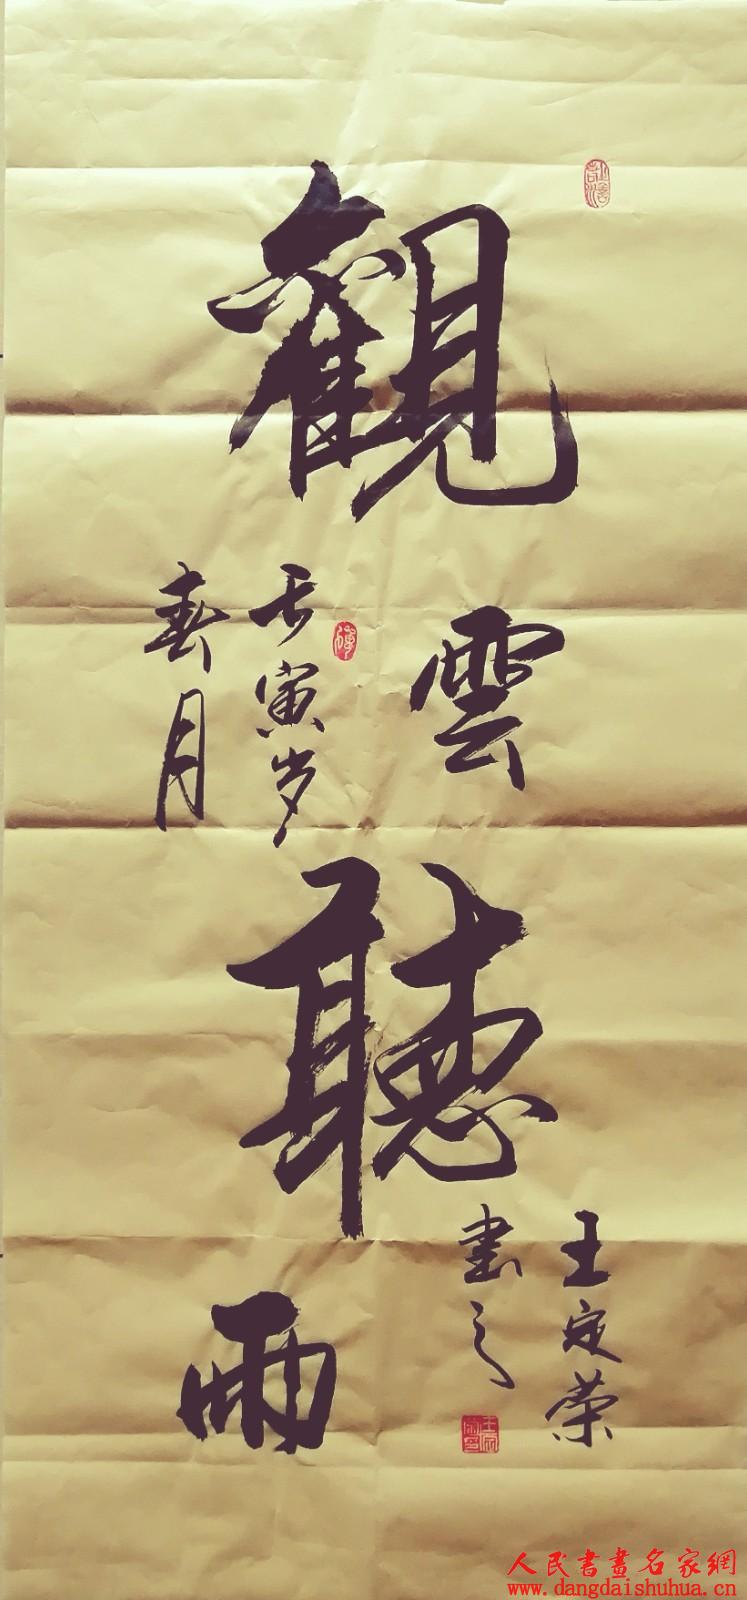 觀雲聽雨
壬寅岁
春月
王定荣
書之
人民書畫名家網
www.dangdaishuhua.cn